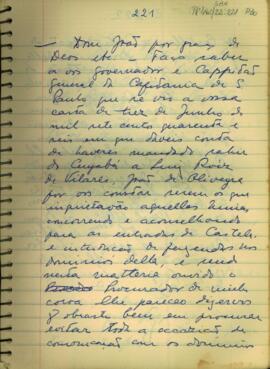 221
— Dom João por graça de
Deos etc. — Faço saber
a vos governador e Cappitão
General da Capitania de S
Paulo que se vio a vossa
carta de trez de Junho de
mil sete cento quarenta e
seis em que daveis conta
de haveres mandado saber
do Cuyabá a Luiz Roiz
de Vilares, João de Oliveyra
por vos constar serem os que
inquietavão aquellas minas
concorrendo e aconselhando
para as entradas de Castela
e introdução de fazendas nos
dominios della, e sendo
nesta matteria ouvido o
Procurador de minha
coroa lhe pareceo dizervos
q obrastes bem em procurar
evitar toda a occazião de
comonicação com os dominios